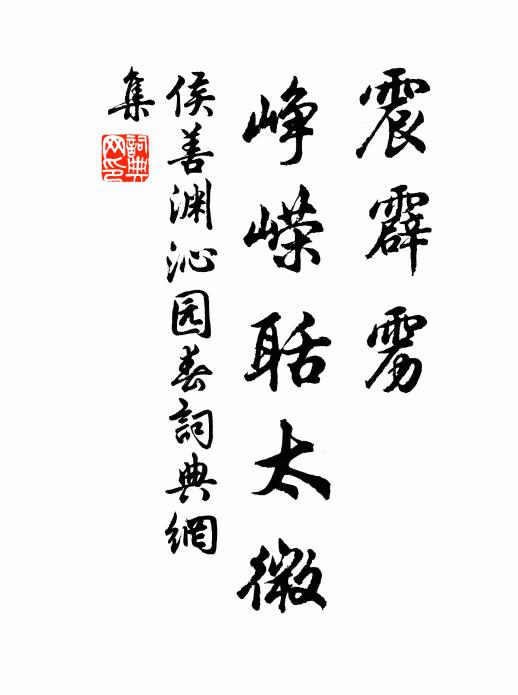 震霹雳
峥嵘聒太微
侯善渊沁园春詞典網
集
詞典
网印